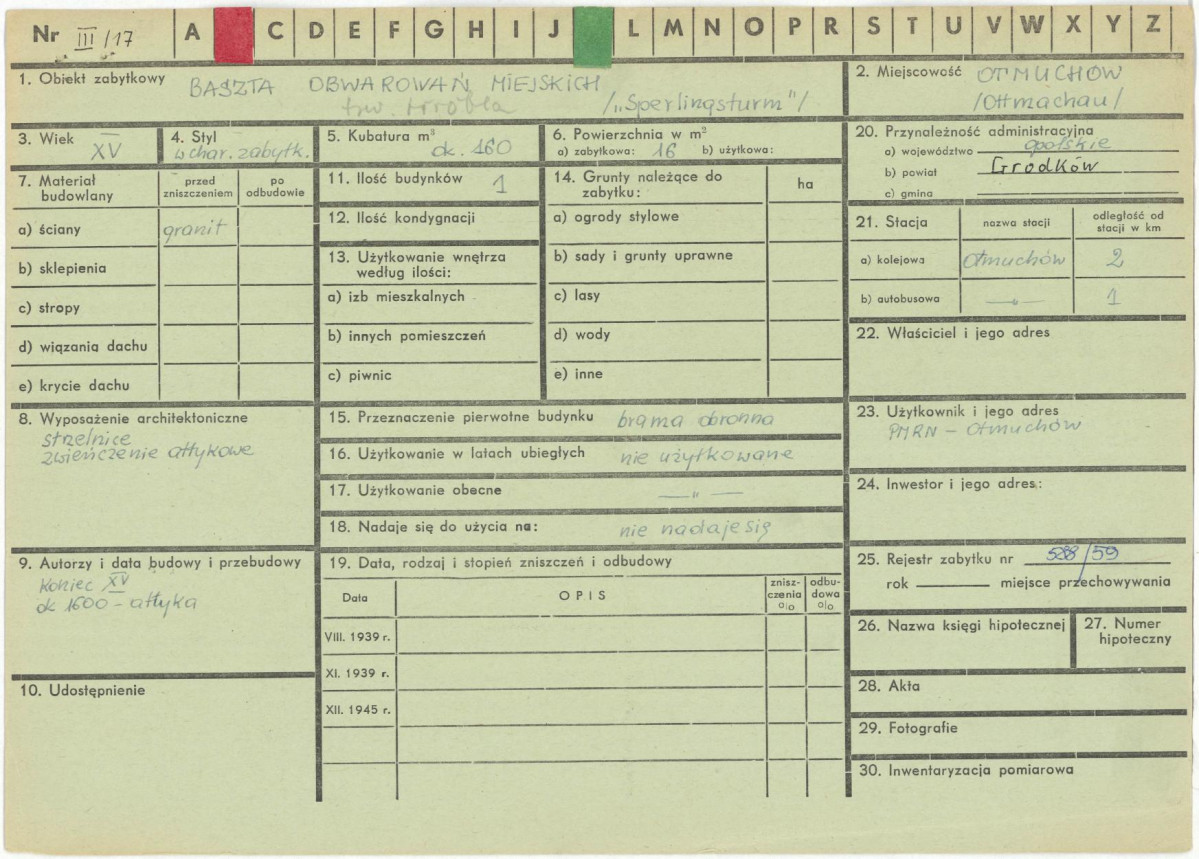 Nr III/17 A C D E F G H I J L M N O P R S T U V W X Y Z
1. Obiekt zabytkowy BASZTA OBWAROWAŃ MIEJSKICH
tzw. Wróbla /„Sperlingsturm"/
2. Miejscowość OTMUCHÓW
/Ottmachau/
3. Wiek XV
4. Styl
w char. zabytk.
5. Kubatura m³
ok. 160
6. Powierzchnia w m²
a) zabytkowa: 16 b) użytkowa:
20. Przynależność administracyjna
a) województwo opolskie
b) powiat Grodków
c) gmina
7. Materiał budowlany
przed zniszczeniem
po odbudowie
a) ściany granit
b) sklepienia
c) stropy
d) wiązania dachu
e) krycie dachu
11. Ilość budynków 1
12. Ilość kondygnacji
13. Użytkowanie wnętrza
według ilości:
a) izb mieszkalnych
b) innych pomieszczeń
c) piwnic
14. Grunty należące do
zabytku:
ha
a) ogrody stylowe
b) sady i grunty uprawne
c) lasy
d) wody
e) inne
21. Stacja
nazwa stacji
odległość od
stacji w km
a) kolejowa Otmuchów 2
b) autobusowa —„— 1
22. Właściciel i jego adres
8. Wyposażenie architektoniczne
strzelnice
zwieńczenie attykowe
15. Przeznaczenie pierwotne budynku brama obronna
16. Użytkowanie w latach ubiegłych nie użytkowane
17. Użytkowanie obecne —„—
18. Nadaje się do użycia na: nie nadaje się
23. Użytkownik i jego adres
PMRN - Otmuchów
24. Inwestor i jego adres:
9. Autorzy i data budowy i przebudowy
koniec XV
ok 1600 - attyka
10. Udostępnienie
19. Data, rodzaj i stopień zniszczeń i odbudowy
Data
OPIS
znisz-
czenia
%
odbu-
dowa
%
VIII. 1939 r.
XI. 1939 r.
XII. 1945 r.
25. Rejestr zabytku nr /59
rok miejsce przechowywania
26. Nazwa księgi hipotecznej
27. Numer
hipoteczny
28. Akta
29. Fotografie
30. Inwentaryzacja pomiarowa